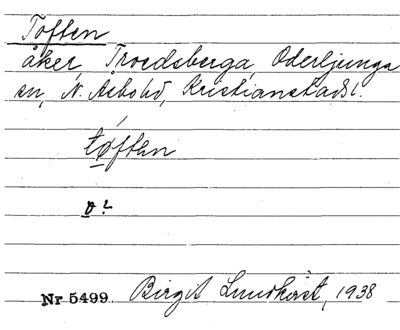 Toften
åker, Troedsberga, Oderljunga
sn, N. Åsbo hd, Kristianstads l.
tøften
ø?
Nr 5499 Birgit Lundkvist, 1938